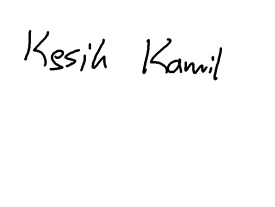 Kesih Kamil